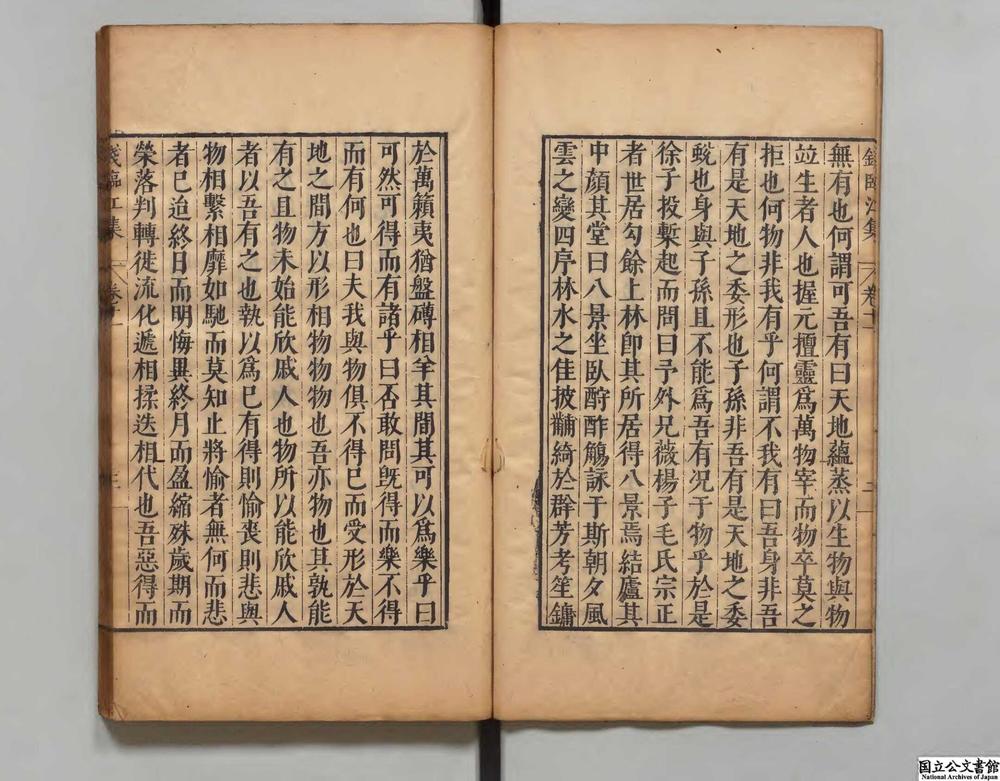 無有也何謂可吾有曰天地蘊蒸以生物與物
竝生者人也握元擅靈爲萬物宰而物卒莫之
拒也何物非我有乎何謂不我有曰吾身非吾
有是天地之委形也子孫非吾有是天地之委
蛻也身與子孫且不能爲吾有况于物乎於是
徐子投塹起而問曰予外兄薇楊子毛氏宗正
者世居勾餘上林卽其所居得八景焉結廬其
中顏其堂曰八景坐臥酧酢觴詠于斯朝夕風
雲之變四序林水之佳披黼綺於群芳考笙鏞
於萬籟夷猶盤礴相羊其間其可以爲樂乎曰
可然可得而有諸乎曰否敢問旣得而樂不得
而有何也曰夫我與物俱不得已而受形於天
地之間方以形相物物物也吾亦物也其孰能
有之且物未始能欣戚人也物所以能欣戚人
者以吾有之也執以爲已有得則愉喪則悲與
物相繫相靡如馳而莫知止將愉者無何而悲
者已迫終日而明悔異終月而盈縮殊歲期而
榮落判轉徙流化遞相揉迭相代也吾惡得而
臨江集
国立公文書館
National Archives of Japan